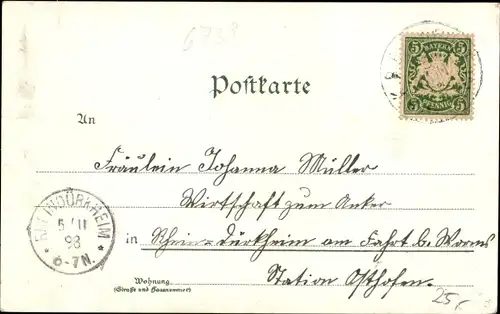 6733
5 BAYERN 5
5 PFENNIG 5
Postkarte
An
Fräulein Johanna Müller
Wirtschaft zum Anker
RHEINDÜRKHEIM
5/11
98
6-7N.
in Rhein-Dürkheim am Fahrt b. Worms
Station Osthofen.
Wohnung
(Straße und Hausnummer)
25,-